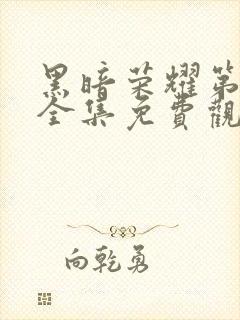 黑暗荣耀第
全集免費觀
向乾勇